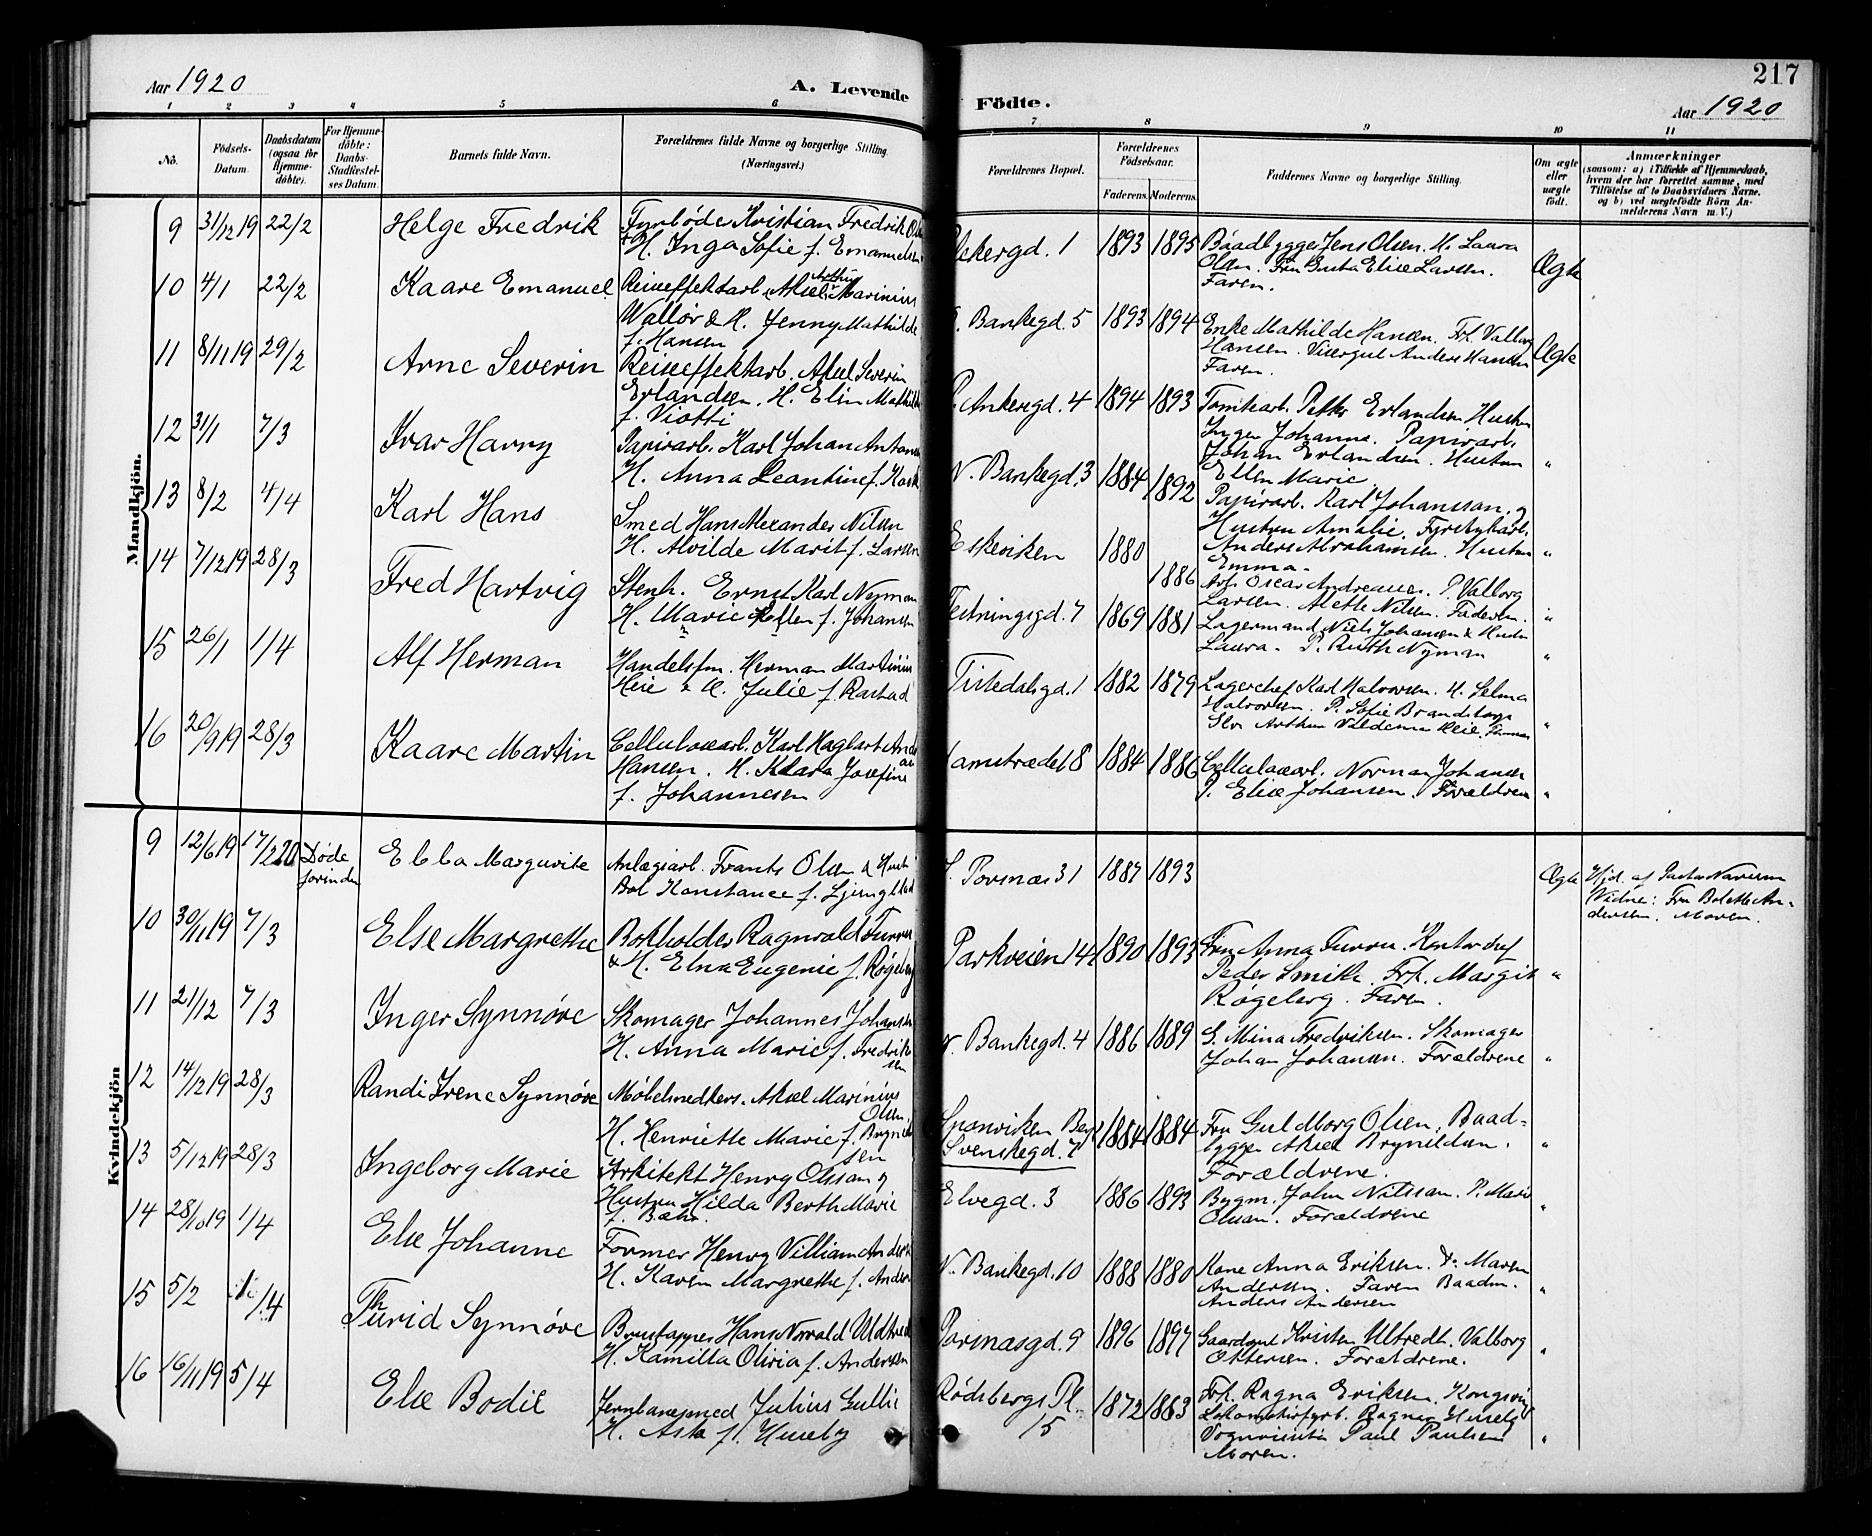 217
Aar 1920
A. Levende Födte.
Aar 1920
1 2 3 4 5 6 7 8 9 10 11
No.
Födsels-Datum.
Daabsdatum (ogsaa for Hjemme-döbte).
For Hjemme-döbte: Daabs-Stadfæstel-ses Datum.
Barnets fulde Navn.
Forældrenes fulde Navne og borgerlige Stilling. (Næringsvei.)
Forældrenes Bopæl.
Forældrenes Födselsaar.
Faderens. Moderens.
Faddernes Navne og borgerlige Stilling.
Om ægte eller uægte födt.
Anmærkninger
(saasom: a) i Tilfælde af Hjemmedaab, hvem der har forrettet samme, med Tilföielse af to Daabsvidners Navne, og b) ved uægtefödte Börn An-melderens Navn m. V.)
Mandkjön.
9 31/12 19 22/2 Helge Fredrik Fyrbøder Kristian Fredrik
& H. Inga Sofie f. Emanuelsen
1 1893 1895 Baadbygger Jens Olsen. H. Laura
Olsen. Fru Gusta Elise Larsen.
Faren. Ægte
10 4/1 22/2 Kaare Emanuel Reiseeffektarb. Aksel Marinius
Walløe & H. Jenny Mathilde
f. Hansen
Bankegd. 5 1893 1894 Enke Mathilde Hansen. Frk. Valborg
Hansen. Visergut Anders Hansen
Faren. Ægte
11 8/11 19 29/2 Arne Severin Reiseeffektarb. Aksel Severin
Erlandsen. H. Elin Mathilde
f. Viotti
P. Ankersgd. 4 1894 1893 Tomtearb. Petter Erlandsen Hustru
Inger Johanne. Papirarb.
Johan Erlandsen. Hustru
Ellen Marie. "
12 31/1 7/3 Ivar Harry Papirarb. Karl Johan Antonsen
H. Anna Leantine f. Kask
N. Bankegd. 3 1884 1892 Papirarb. Karl Johanssan. og
Hustru Amalie. Fyrstikarb.
Anders Abrahamsen. Hustru
Emma. "
13 8/2 4/4 Karl Hans Smed Hans Alexander Nilsen
H. Alvilde Marit f. Larsen
Eskeviken 1880 1886 Arb. Oscar Andreasen. P. Valborg
Larsen. Alette Nilsen. Faderen. "
14 7/12 19 28/3 Fred Hartvig Stenh. Ernst Karl Nyman
H. Marie Ellen f. Johansen
Festningsgd. 7 1869 1881 Lagermand Niels Johansen & Hustru
Laura. P. Ruth Nyman "
15 26/1 1/4 Alf Herman Handelsfm. Herman Martinius
Heie & H. Julie f. Rastad
Tistedalsgd. 1 1882 1879 Lagerchef Karl Halvorsen. H. Selma
Halvorsen. P. Sofie Brandstorp
Arthur Valdemar Heie. "
16 20/9 19 28/3 Kaare Martin Cellulosearb. Karl Haglart
Hansen. H. Klara Josefine
f. Johannesen
Damstrædet 8 1884 1886 Cellulosearb. Norman Johansen
P. Elise Johansen. Forældrene "
Kvindekjön
9 12/6 19 17/2 20 Døde forinden Ebba Marguerite Anlægsarb. Frants Olsen & Hust.
Bol. Konstance f. Ljungblad
Porsnæs 31 1887 1893 Ægte Hjd. af Pastor
Vidne: Fru Bolette An-
dersen. Moren.
10 30/11 19 7/3 Else Margrethe Bokholder Ragnvald Furru
& H. Elna Eugenie f. Røgeberg
Parkveien 14 1890 1893 Fru Anna Furru. Kontorchef
Peder Smith. Frk. Margit
Røgeberg. Faren. "
11 21/12 7/3 Inger Synnøve Skomager Johannes Johansen
H. Anna Marie f. Fredrik-
sen
N. Bankegd. 4 1886 1889 G. Mina Fredriksen. Skomager
Johan Johansen. Forældrene "
12 14/12 19 28/3 Randi Irene Synnøve Møbelsnedkers. Aksel Marinius
Olsen.
H. Henriette Marie f. Brynild-
sen
Sponviken
Svenskegd. 1884 1884 Fru Guldborg Olsen, Baad-
bygger Aksel Brynildsen.
Forældrene. "
13 5/12 19 28/3 Ingeborg Marie Arkitekt Henry Olssan og
Hustru Hilda Berth Marie
f. Bæhr.
Elvegd. 3 1886 1893 Bygm. John Nilssan. P. Marie
Olssan. Forældrene "
14 28/10 19 1/4 Else Johanne Former Henry Villiam Andersen
H. Karen Margrethe f. Anders
N. Bankegd. 10 1888 1880 Kone Anna Eriksen. Fr. Maren
Anderssen. Faren Baadm.
Anders Andersen "
15 5/2 1/4 Thurid Synnøve Brustapper Hans Norvald Uldtredt
H. Kamilla Olivia f. Anderssen
Porsnæsgd. 9 1896 1897 Gaardsgut Kristen Ultredt. Valborg
Ottersen. Forældrene. "
16 16/11 19 5/4 Else Bodil Jernbanesmed Julius Gullie
H. Asta f. Huseby
Rødsbergs Pl.
15 1872 1883 Frk. Ragna Eriksen. Kongsving
Lokomotivfyrb. Ragnar Huseby
Vognvisitør Paul Paulsen
Moren. "